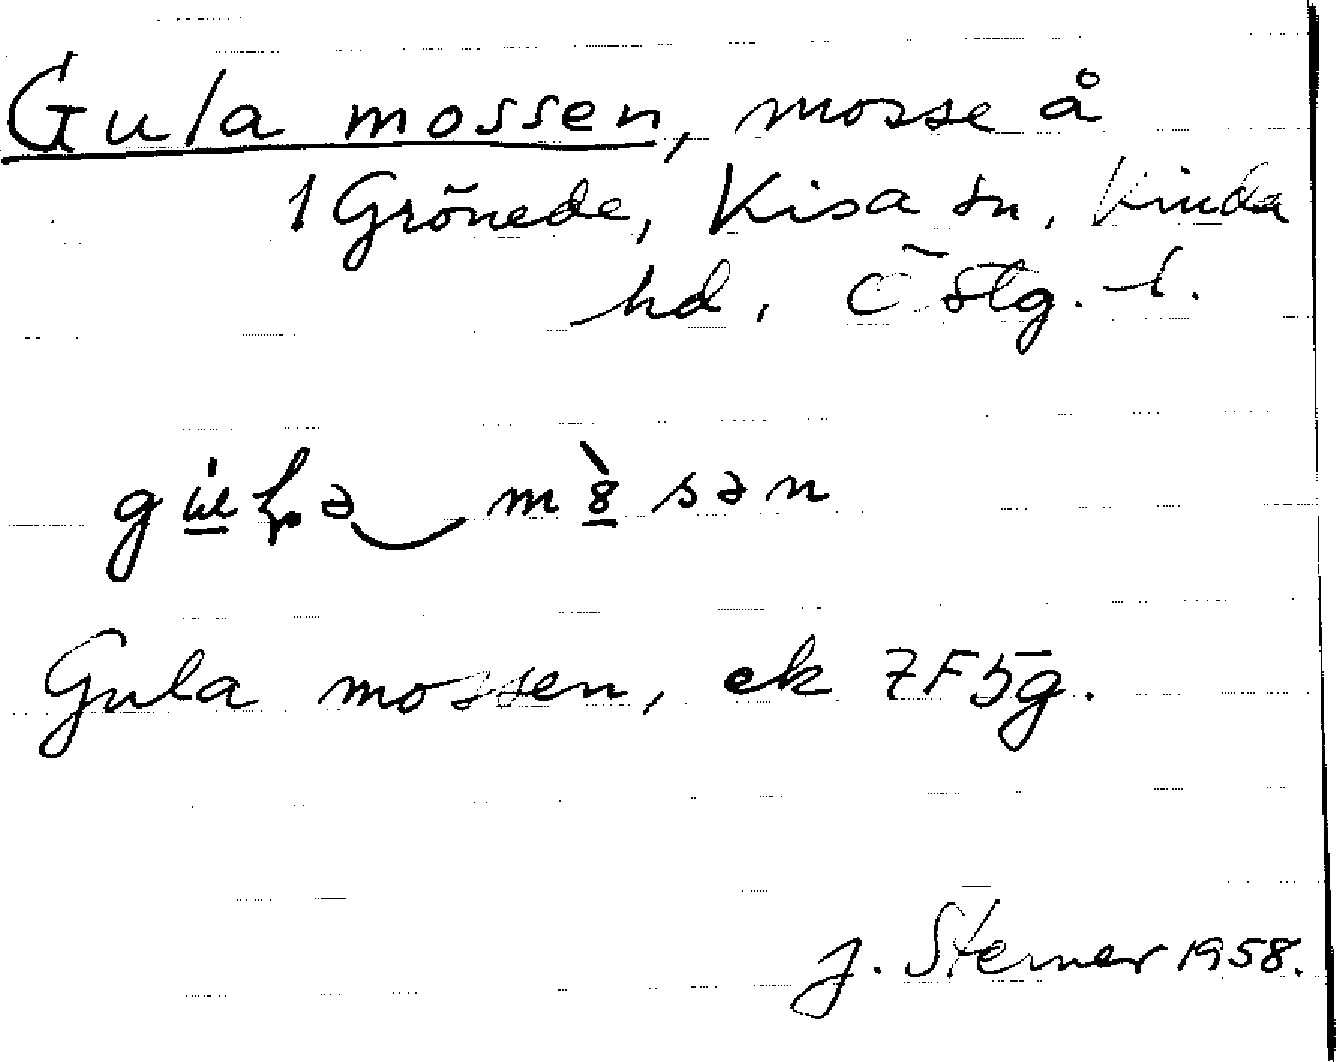 Gula mossen, mosse å
1 Grönede, Kisa sn, Kinda
hd, Östg. l.
mòsən
Gula mossen, ek 7F5g.
J. Sterner 1958.